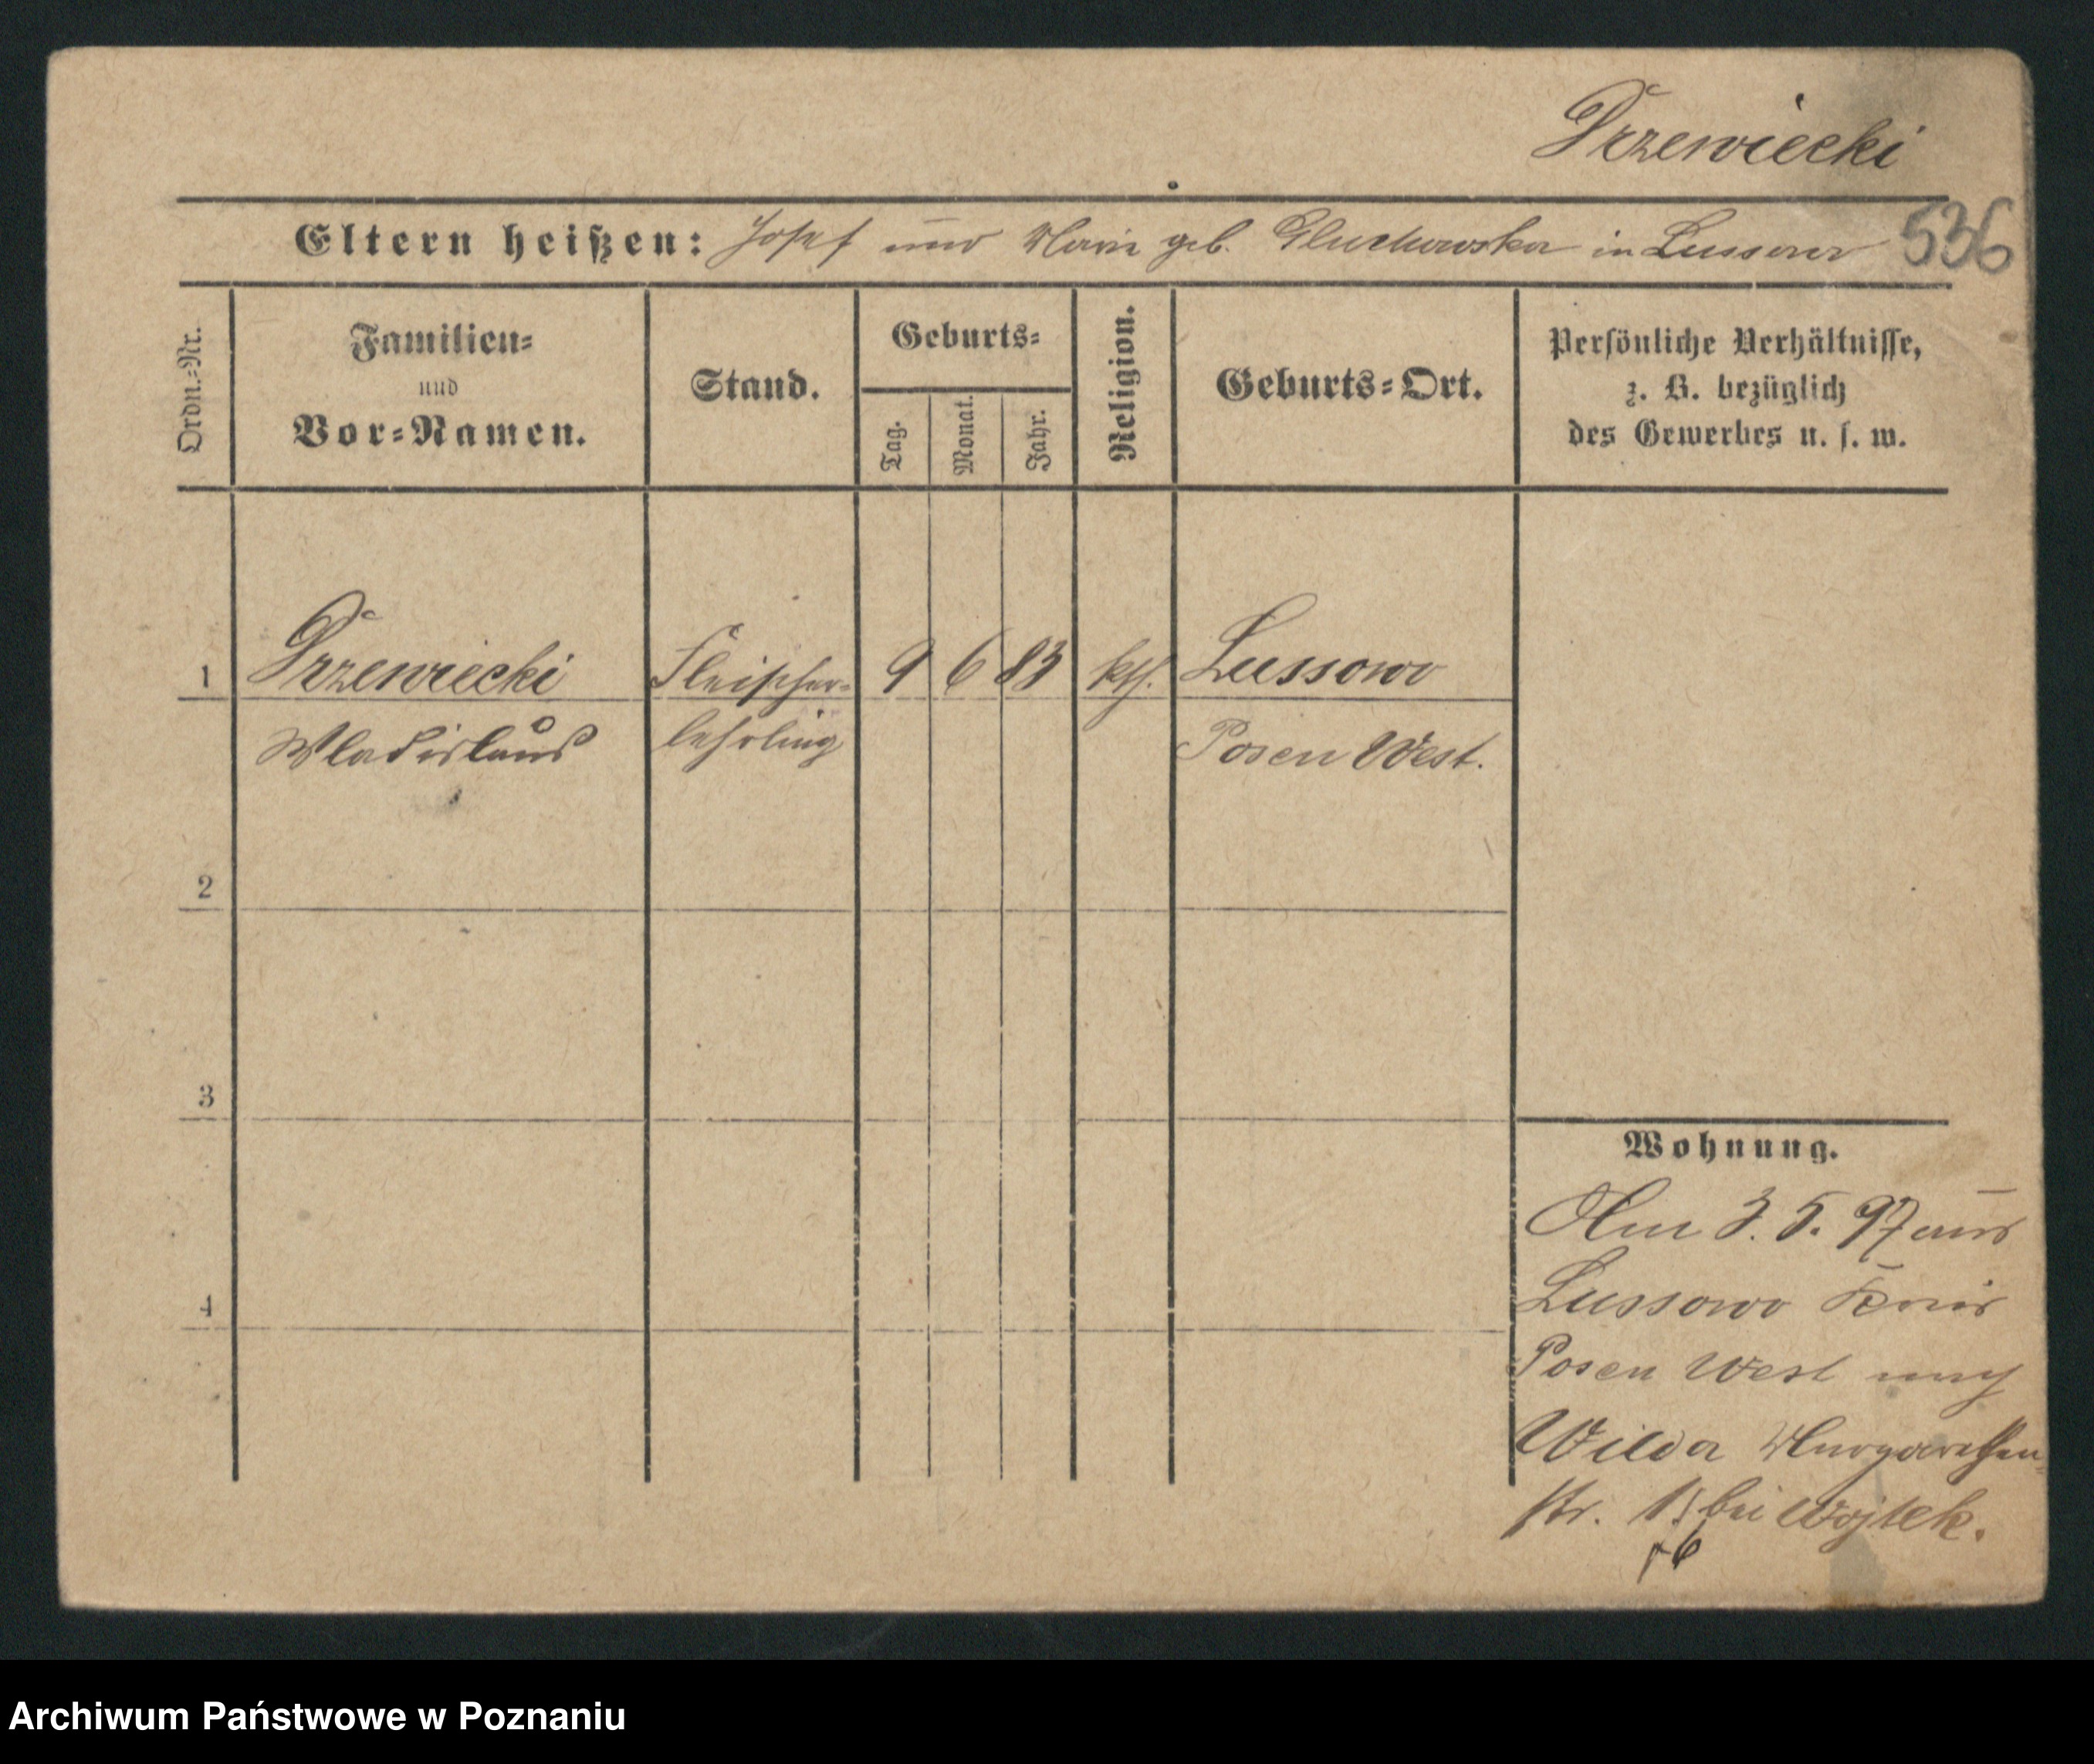 Drzewiecki
536
Eltern heißen: Josef und Marie geb. Gluchowska in Lussowo
Ordn.-Nr.
Familien-
und
Vor-Namen.
Stand.
Geburts-
Tag.
Monat.
Jahr.
Religion.
Geburts-Ort.
Persönliche Verhältnisse,
z. B. bezüglich
des Gewerbes u. s. w.
1 Drzewiecki Fleischer- 9 6 83 kth. Lussowo
Wladislaus lehrling Posen West.
2
3
4
Wohnung.
Am 3. 5. 97 aus
Lussowo Kreis
Posen West nach
Wilda Margarethen-
str. bei Wojtek.
Archiwum Państwowe w Poznaniu